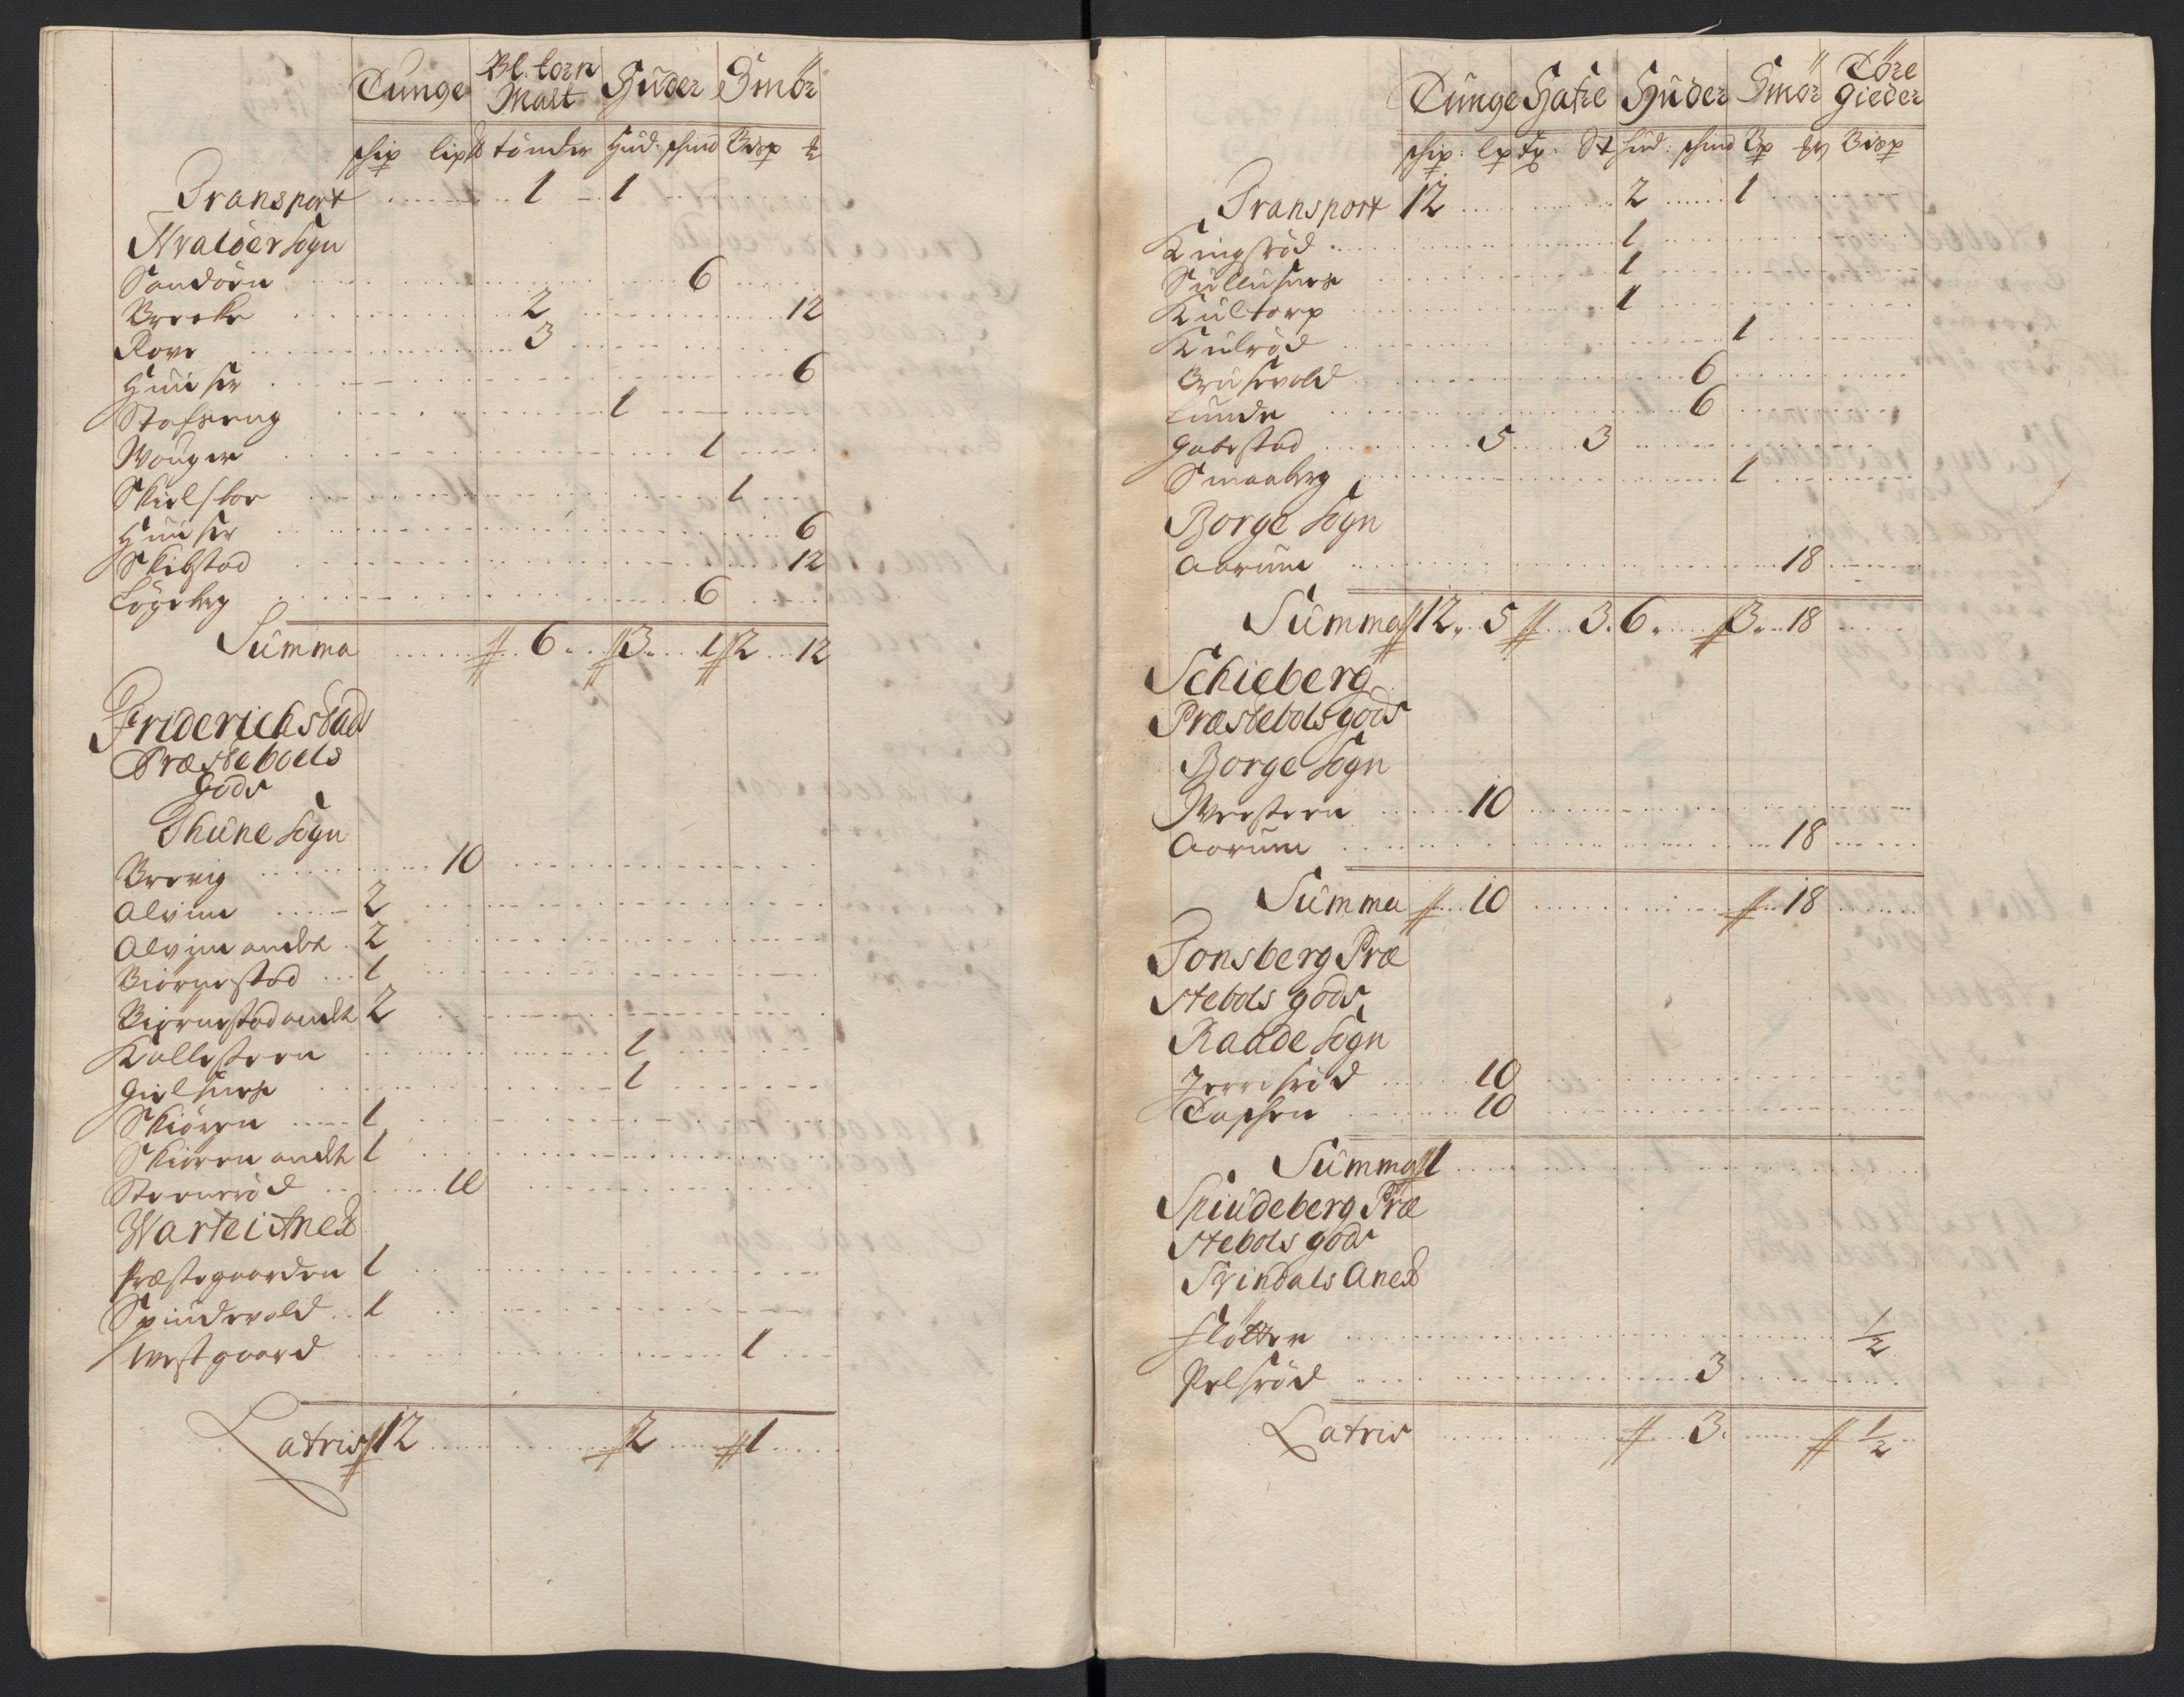 Tunge Bl. korn Malt Huder Smör
schip lip℔ tönder Hud: schind Bisp ℔
Transport 1 1
Hvalöer Sogn
Sandöen 6
Brecke 2 12
Rove 3
Huuser 6
Stafseng 1
Wouger 1
Skielsboe 1
Huuser 6
Skibstad 12
Lögeberg 6
Summa 6 3 1 2 12
Friderichstad
Præsteboels
Gods
Thune Sogn
Brevig 10
Alvim 2
Alvim andet 2
Biörnestad 1
Biörnestad andet 2
Kallesteen
1
Gielsnes 1
Skiören 1
Skiören andet 1
Steneröd 10
Wartei Anex
Præstegaarden 1
Spindevold 1
Westgaard 1
Latris 12 2 1
Tunge Hafre Huder Smör Töre Gieder
schip: lp tr. St hud: schind Bp ℔ Bisp
Transport 12 2 1
Kingsröd 1
Süllüsnes 1
Kultorp 1
Kulröd 1
Brusevold 6
Lunde 6
Gabestad 5 3
Smaaberg 1
Borge Sogn
Aarum 18
Summa 12 5 3 6 3 18
Schieberg
Præstebols gods
Borge Sogn
Weesteen 10
Aarum 18
Summa 10 18
Tonsberg Præ
stebols gods
Raade Sogn
Jerriseröd 10
Tasken 10
Summa 1
Spiudeberg Præ
stebols gods
Svindals Anex
Slötten 1/2
Pelseröd 3
Latris 3 1/2